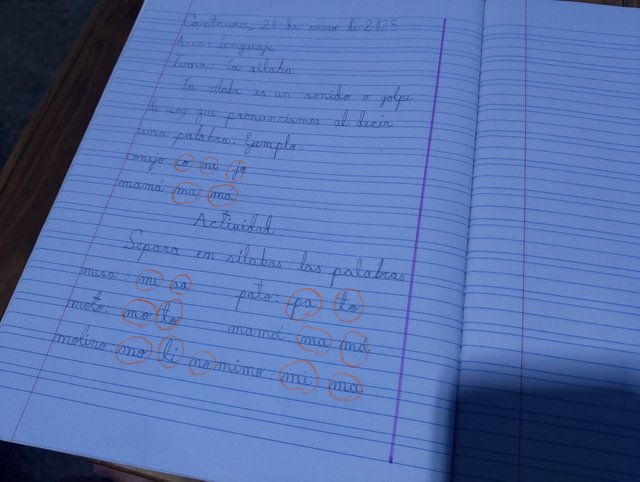 Cantaura, 20 de enero de 2025
Area: lenguaje
Tema: La sílaba.
La sílaba es un sonido o golpe
de voz que pronunciamos al decir
una palabra. Ejemplo:
conejo co ne jo
mamá ma má
Actividad
Separa en sílabas las palabras
mesa: me sa pato pa to
moto: mo to mamá: ma má
molino: mo li no mimo mi ma